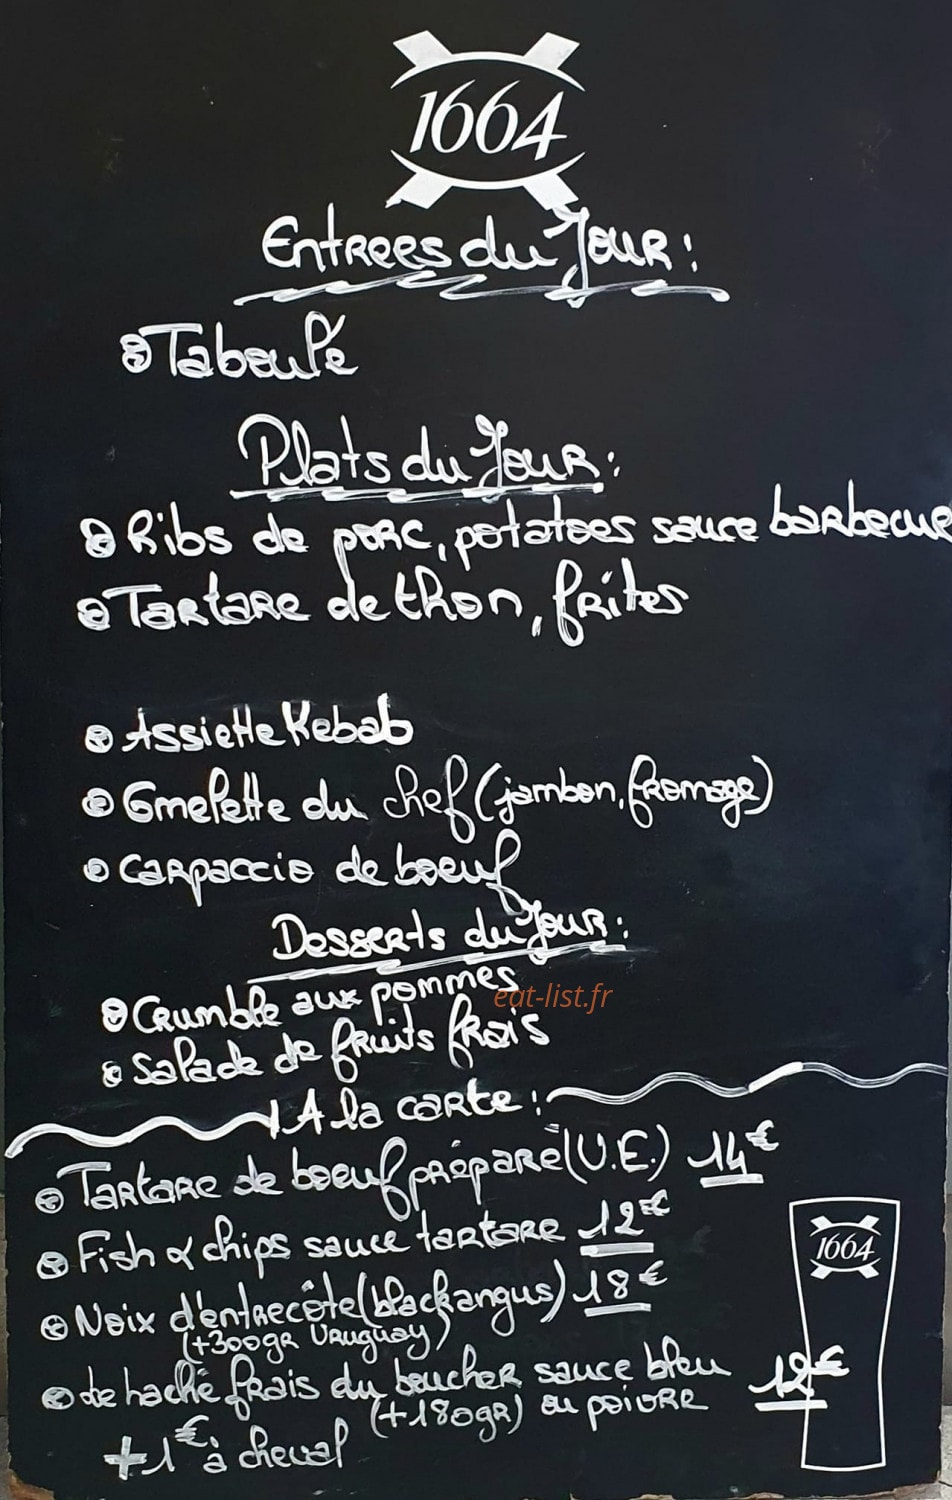 1664
Entrees du Jour :
Taboulé
Plats du Jour :
Ribs de porc, potatoes sauce barbecue
Tartare de thon, frites
Assiette Kebab
Omelette du chef (jambon, fromage)
Carpaccio de boeuf
Desserts du Jour :
Crumble aux pommes
eat-list.fr
Salade de fruits frais
A la carte :
Tartare de boeuf préparé (U.E.) 14€
Fish & chips sauce tartare 12€
1664
Noix d'entrecôte (blackangus) 18€
(+300gr Uruguay)
Le haché frais du boucher sauce bleu 12€
(+180gr) ou poivre
+1€ à cheval